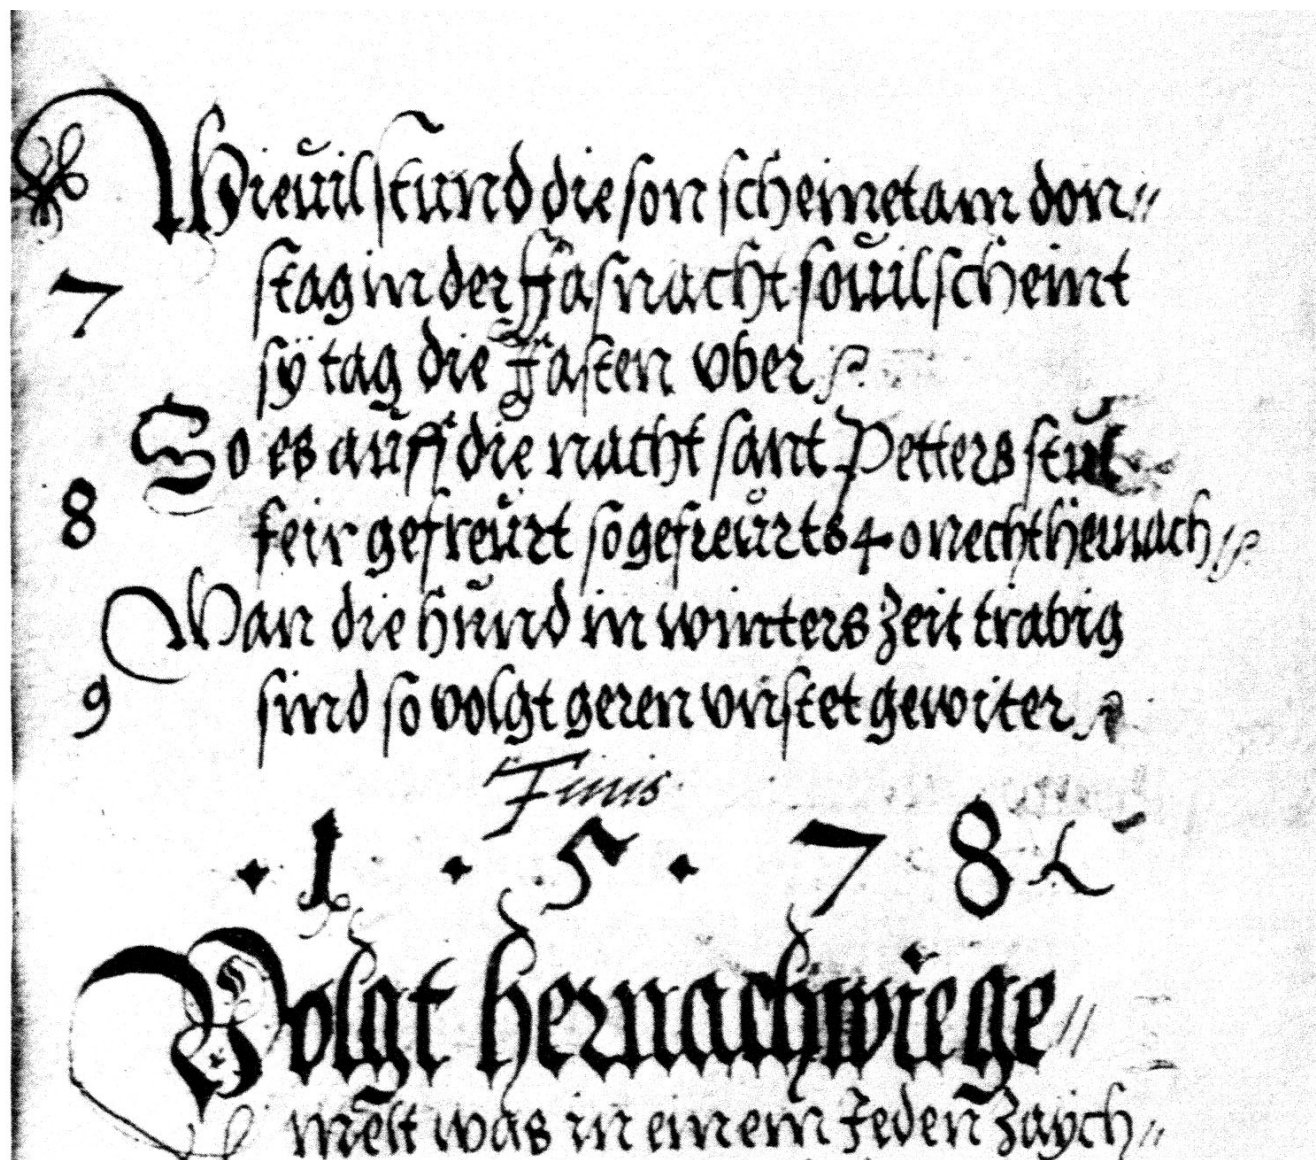 Wieuil stund die son scheinet am don〃
7 stag in der ffasnacht souil scheint
sÿ tag die ffasten vber
So es auff die nacht sant Petters stul
8 feir gefreurt so gefreurts 40 necht hernach
Wan die hund in winters zeit trabig
9 sind so volgt geren vnstet gewiter
Finis
· 1 · 5 · 7 8
Volgt hernach wie ge〃
melt was in einem Jeden Zaÿch〃